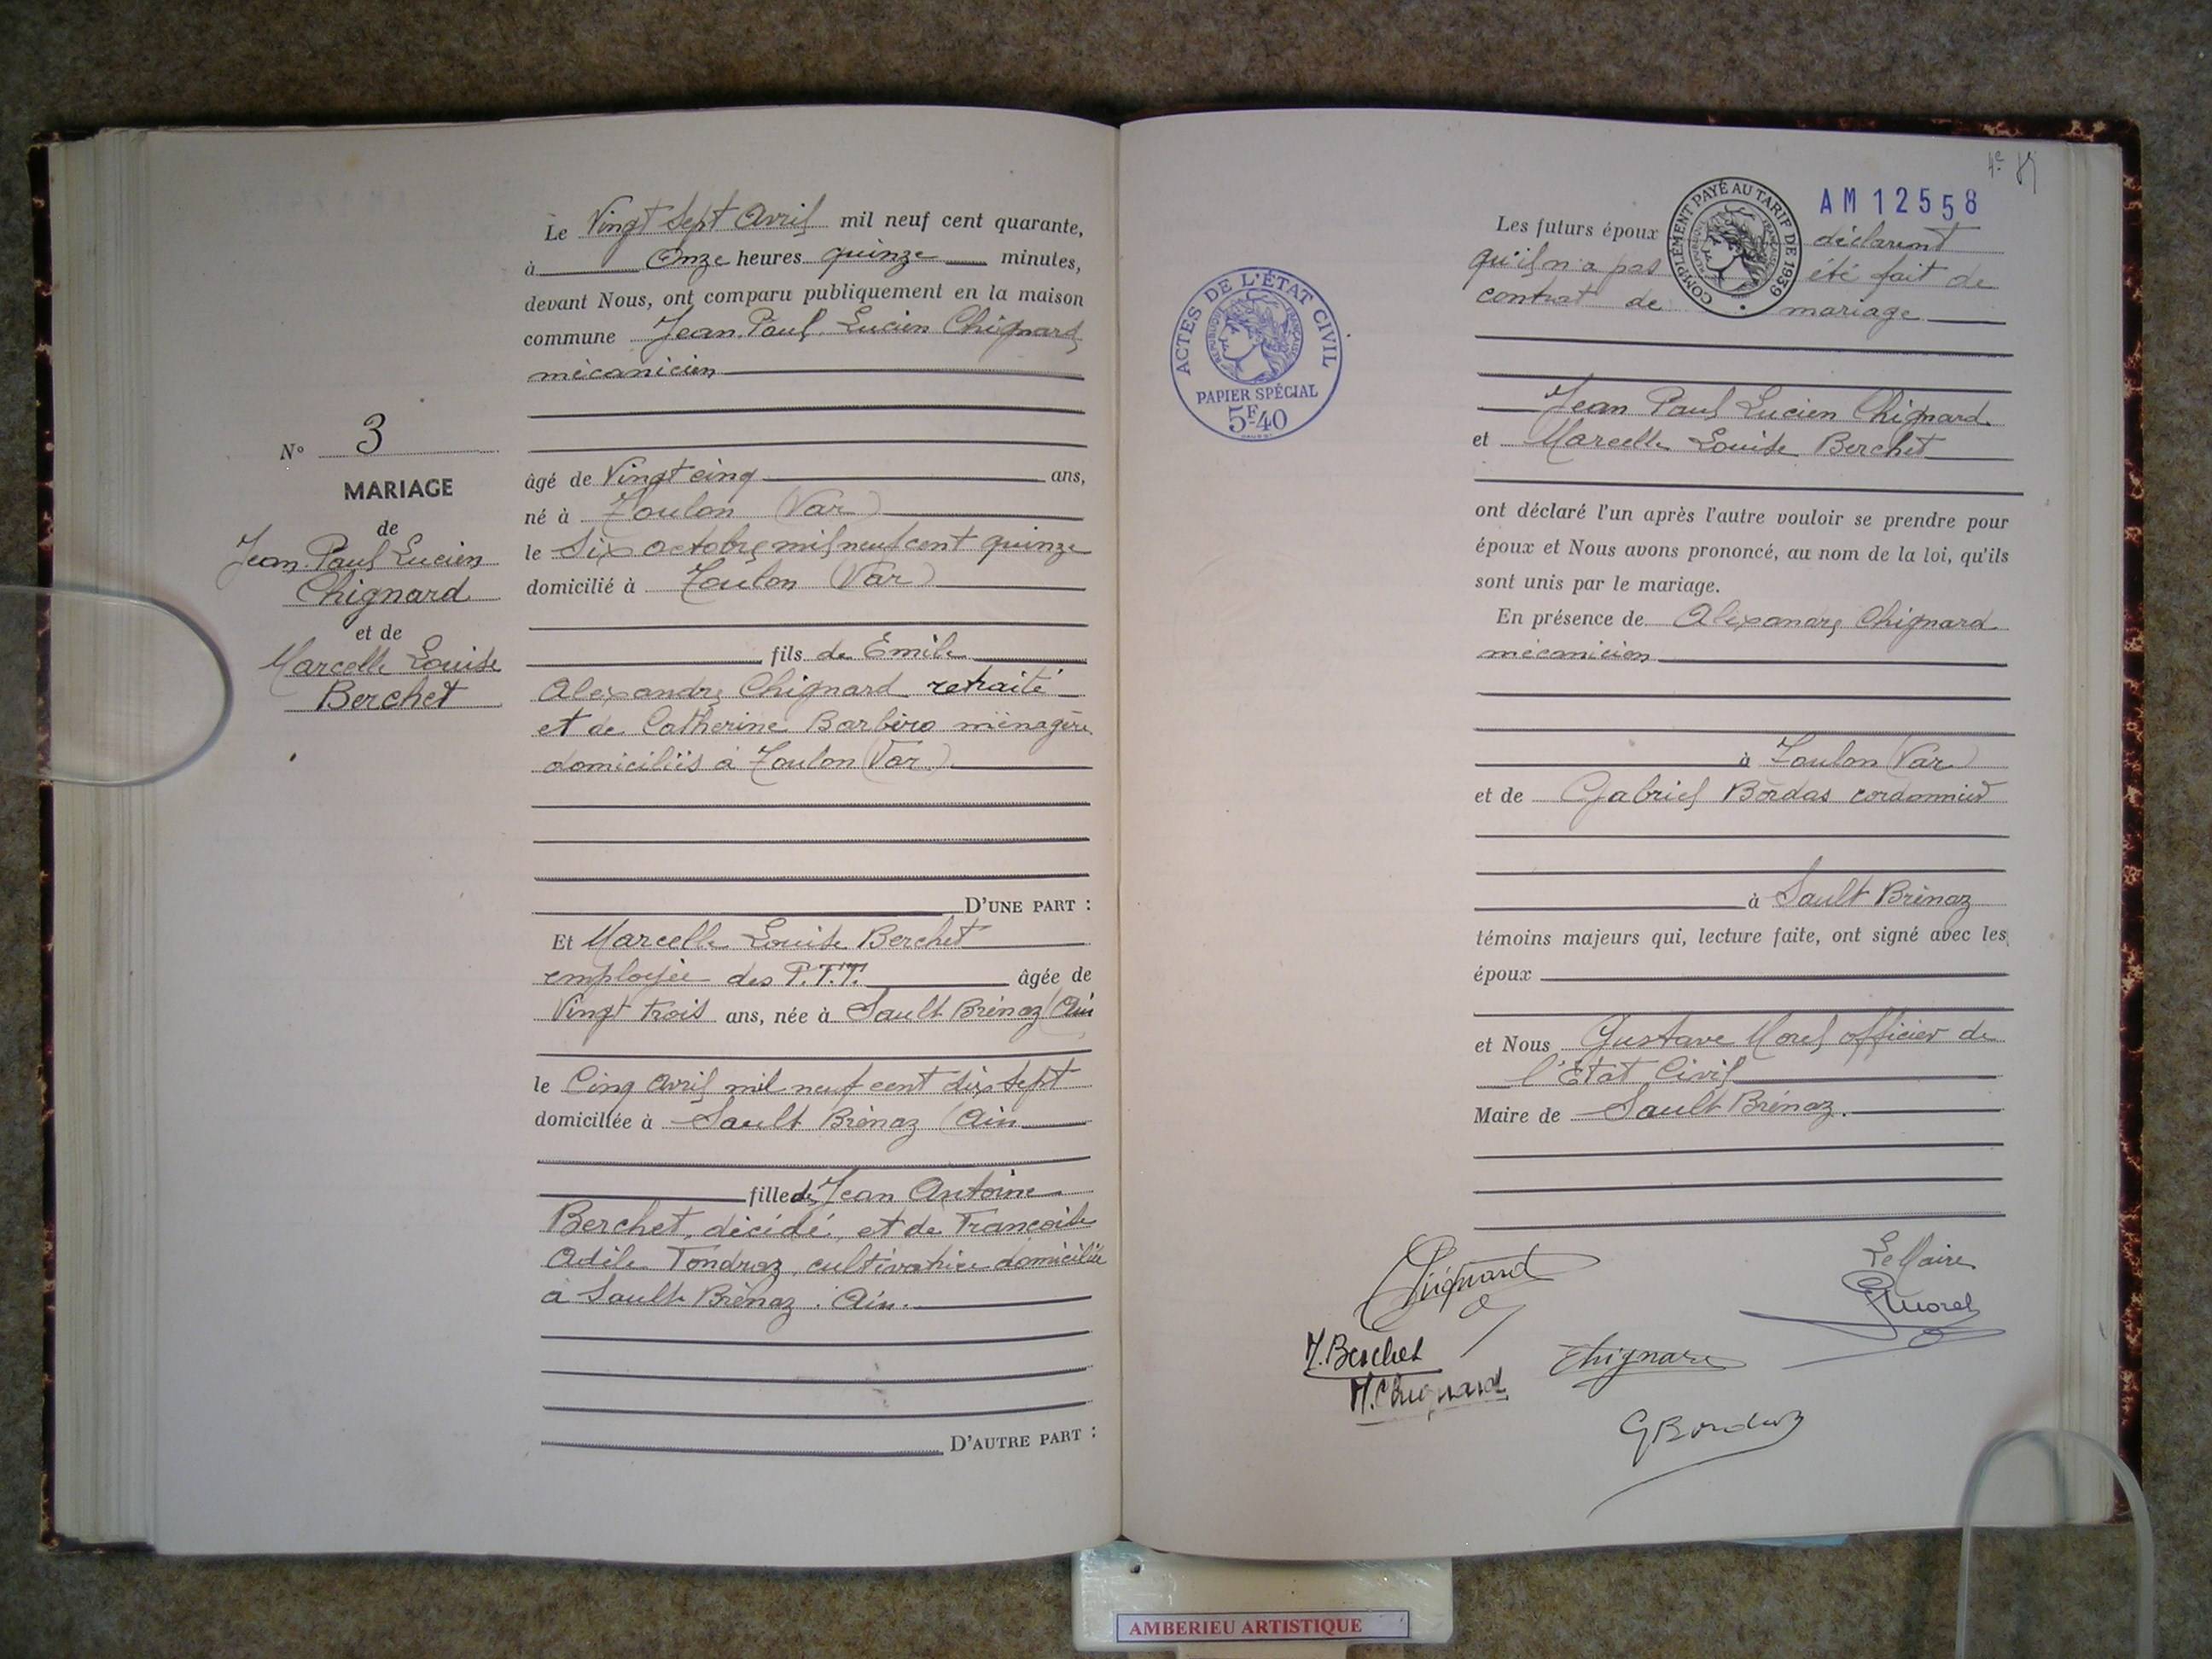 N° 3
MARIAGE
de
Jean Paul Lucien
Chignard
et de
Marcelle Louise
Berchet
Le Vingt sept Avril mil neuf cent quarante,
à Onze heures quinze minutes,
devant Nous, ont comparu publiquement en la maison
commune Jean Paul Lucien Chignard
mécanicien
âgé de Vingt cinq ans,
né à Toulon (Var)
le Six octobre mil neuf cent quinze
domicilié à Toulon (Var)
fils de Emile
Alexandre Chignard retraité
et de Catherine Barbero ménagère
domiciliés à Toulon (Var)
D'UNE PART :
Et Marcelle Louise Berchet
employée des P.T.T. âgée de
Vingt trois ans, née à Sault Brénaz (Ain
le Cinq avril mil neuf cent dix sept
domiciliée à Sault Brénaz (Ain
fille de Jean Antoine
Berchet, décédé, et de Françoise
Adèle Tondraz, cultivatrice domiciliée
à Sault Brénaz. Ain.
D'AUTRE PART :
ACTES DE L'ÉTAT CIVIL
RÉPUBLIQUE FRANÇAISE
PAPIER SPÉCIAL
5F40
COMPLÉMENT PAYÉ AU TARIF DE 1939
RÉPUBLIQUE FRANÇAISE
AM 12558
Les futurs époux déclarent
qu'il n'a pas été fait de
contrat de mariage
Jean Paul Lucien Chignard
et Marcelle Louise Berchet
ont déclaré l'un après l'autre vouloir se prendre pour
époux et Nous avons prononcé, au nom de la loi, qu'ils
sont unis par le mariage.
En présence de Alexandre Chignard
mécanicien
à Toulon (Var)
et de Gabriel Bordas cordonnier
à Sault Brénaz
témoins majeurs qui, lecture faite, ont signé avec les
époux
et Nous Gustave Morel officier de
l'Etat Civil
Maire de Sault Brénaz.
Chignard
Le Maire
GMorel
M.Berchet
M.Chignard
Chignard
GBordas
AMBERIEU ARTISTIQUE